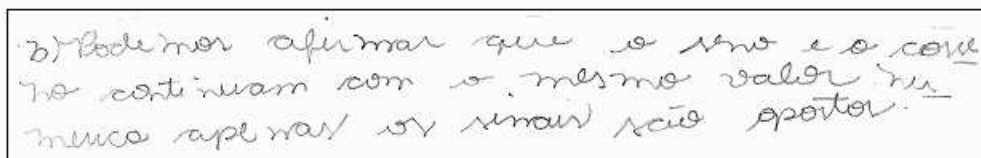 b) Podemos afirmar que o seno e o cose
no continuam com o mesmo valor nu
merico apenas os sinais são opostos.